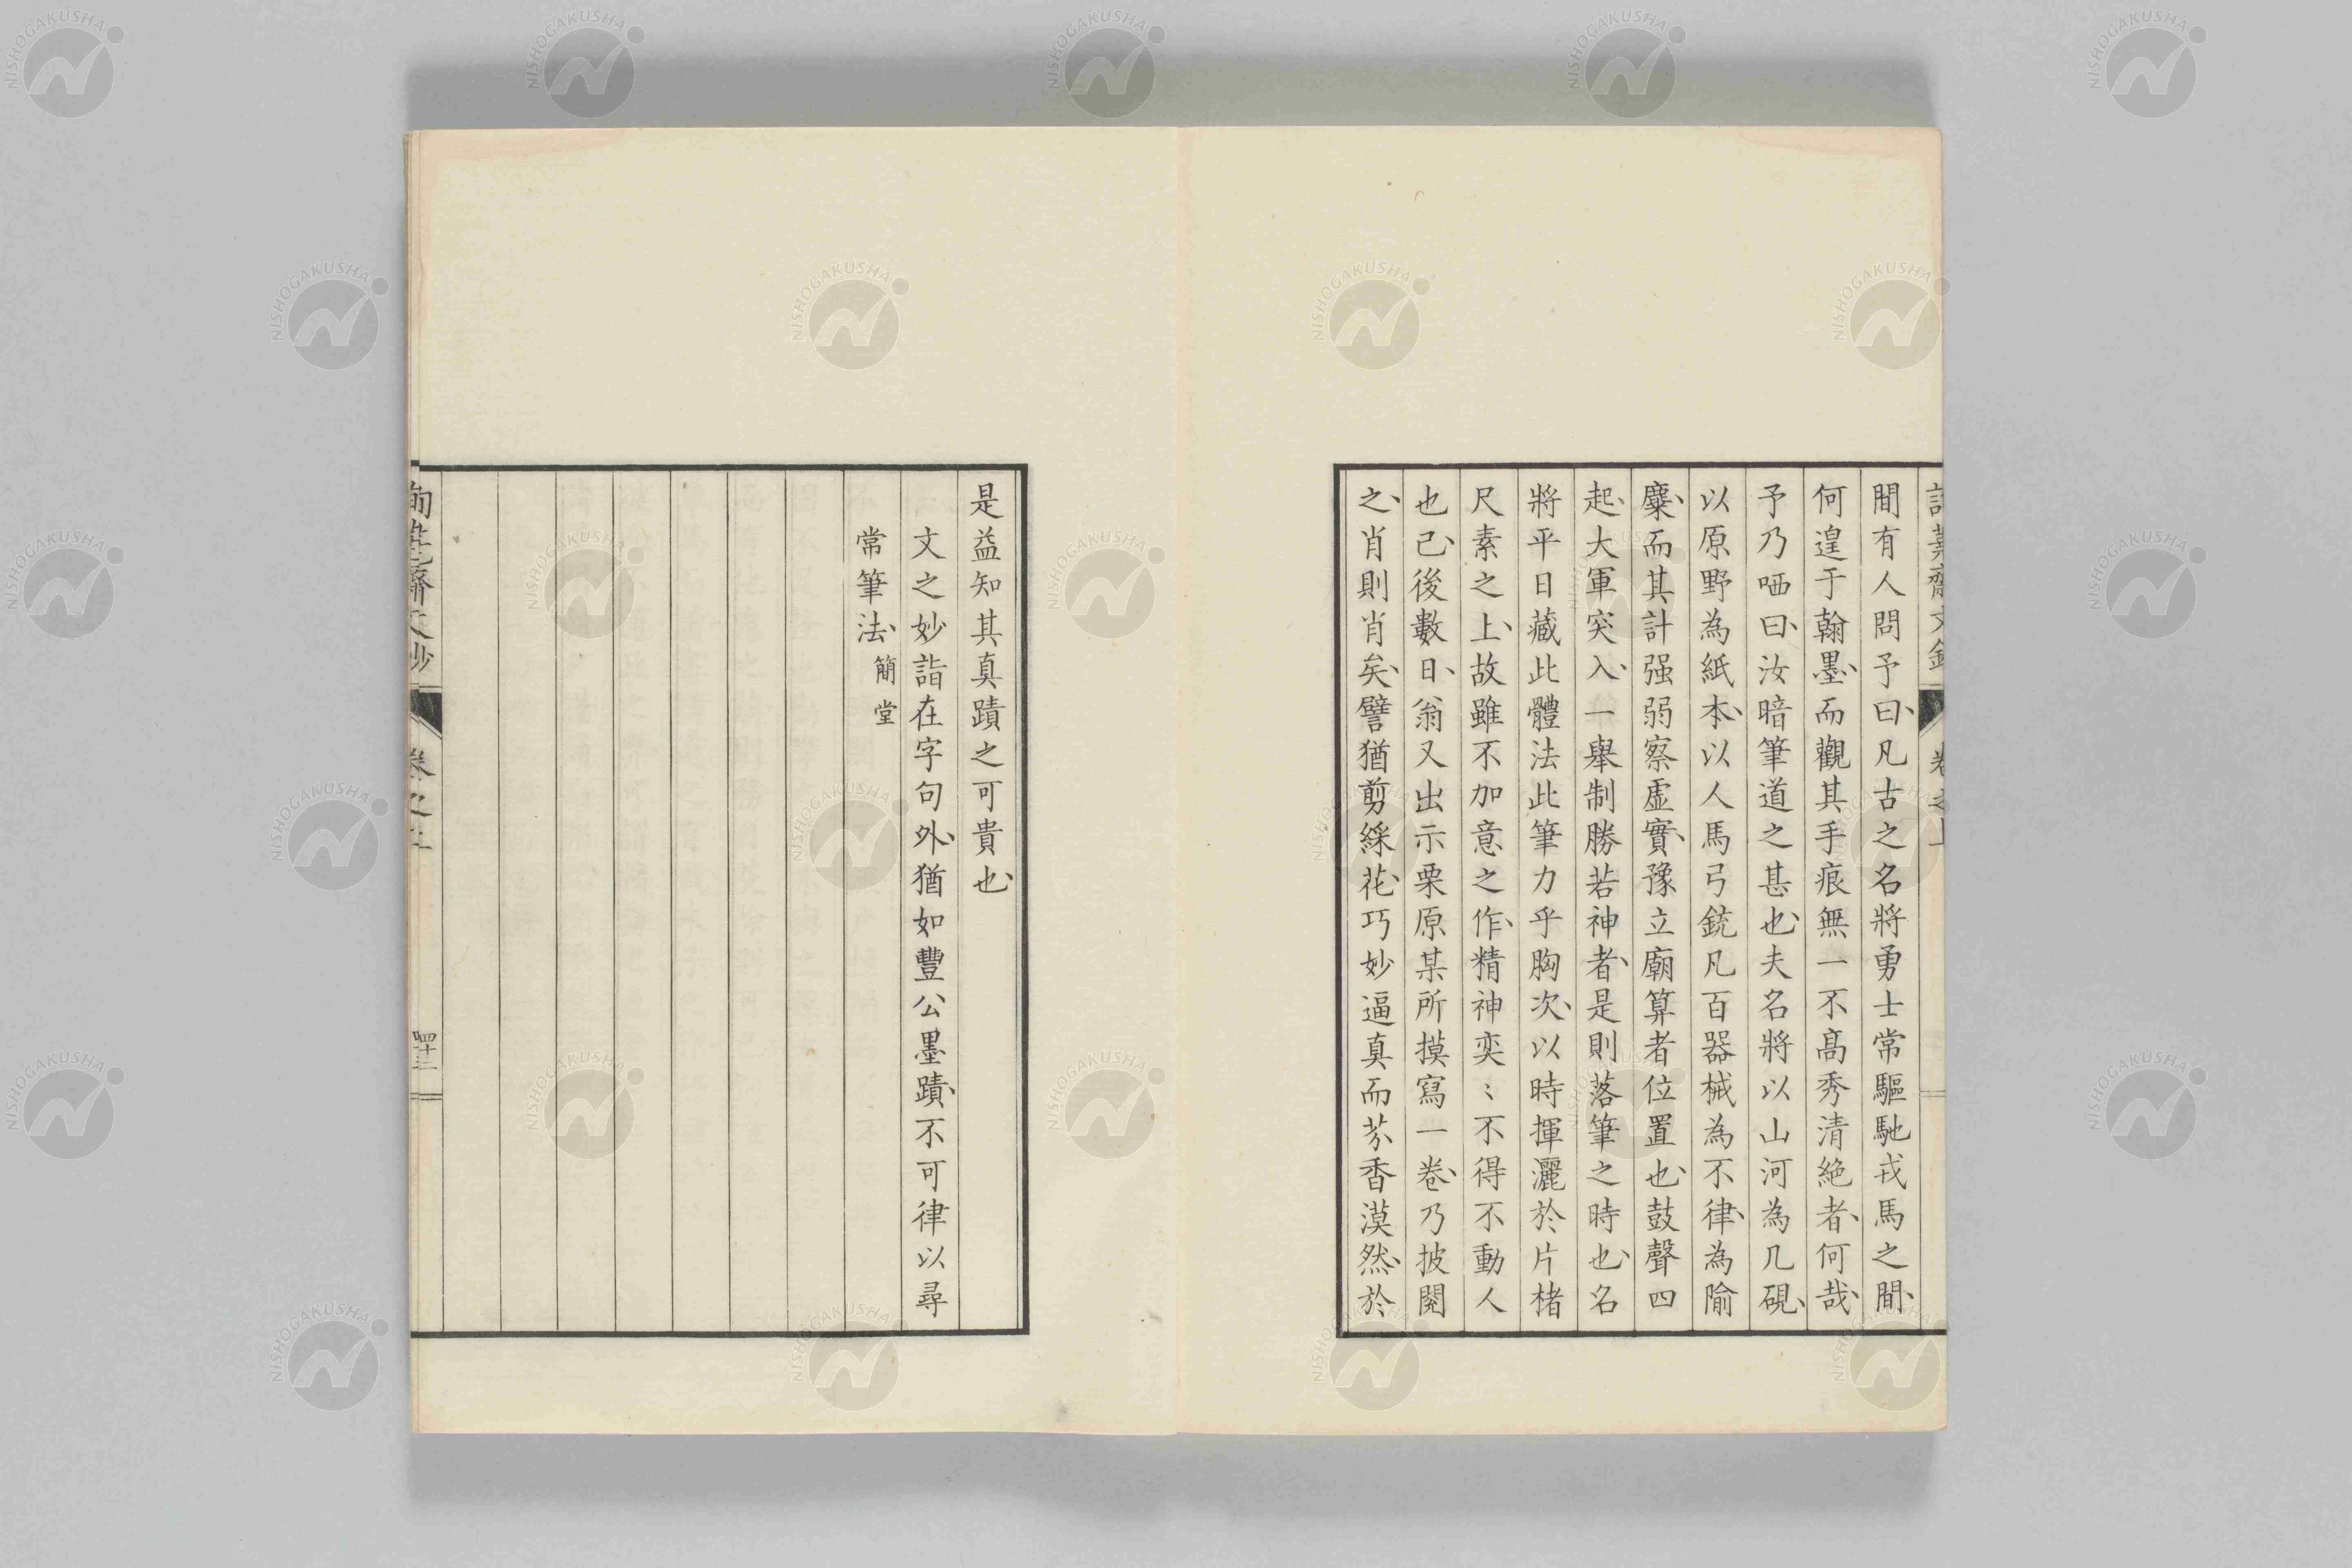 間有人問予曰、凡古之名將勇士常驅馳戎馬之間、
何遑于翰墨、而觀其手痕無一不高秀清絶者、何哉、
予乃哂曰、汝暗筆道之甚也、夫名將以山河為几硯、
以原野為紙本、以人馬弓銃凡百器械為不律、為隃
麋、而其計强弱察虛實、豫立廟算者位置也、鼓聲四
起、大軍突入、一舉制勝若神者、是則落筆之時也、名
將平日藏此體法此筆力乎胸次、以時揮灑於片楮
尺素之上、故雖不加意之作、精神奕〻不得不動人
也已、後數日、翁又出示栗原某所摸寫一卷、乃披閱
之、肖則肖矣、譬猶剪綵花、巧妙逼真而芬香漠然、於
是益知其真蹟之可貴也、
文之妙詣在字句外、猶如豐公墨蹟、不可律以尋
常筆法、簡堂
卷之上
四十二
NISHOGAKUSHA